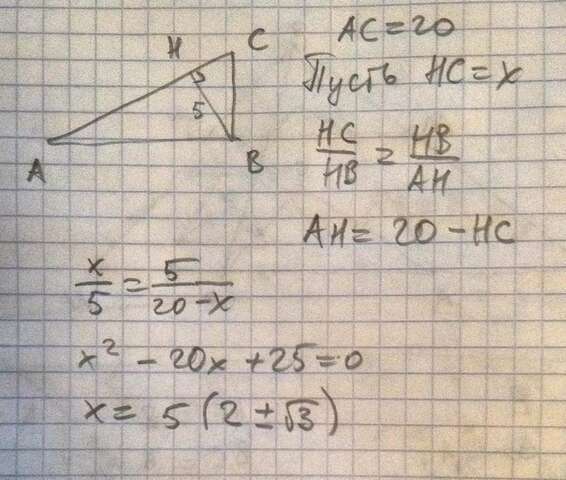 H C
5
A B
AC = 20
Пусть HC = x
HC/HB = HB/AH
AH = 20 - HC
x/5 = 5/20-x
x² - 20x + 25 = 0
x = 5(2 ± √3)